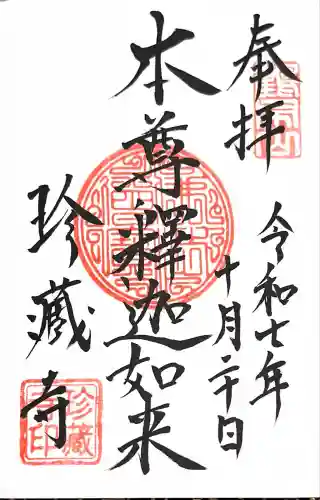 奉拝
令和七年
十月二十日
本尊釋迦如来
珍藏寺
珍藏
寺印